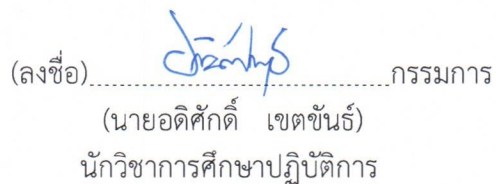 (ลงชื่อ)..............................กรรมการ
(นายอดิศักดิ์ เขตขันธ์)
นักวิชาการศึกษาปฏิบัติการ